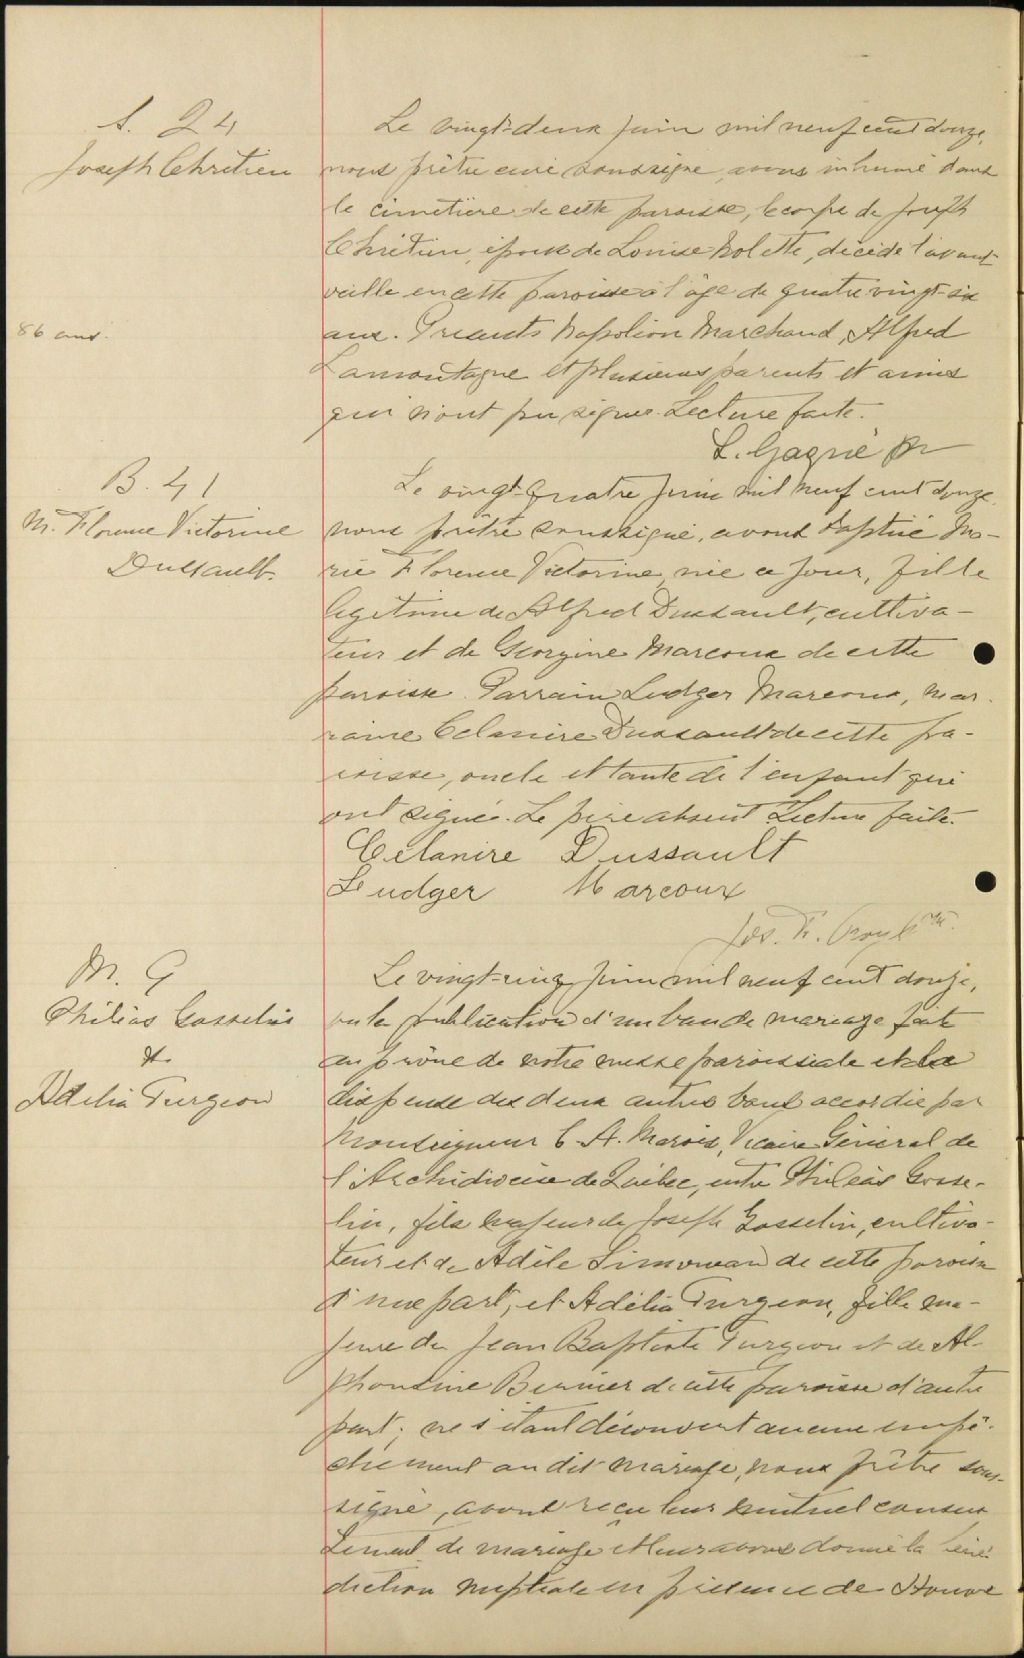 S. 24
Joseph Chrétien
86 ans.
Le vingt-deux juin mil neuf cent douze,
nous prêtre curé soussigné, avons inhumé dans
le cimetière de cette paroisse, le corps de Joseph
Chrétien, époux de Louise Nolette, décédé l'avant
veille en cette paroisse à l'âge de quatre vingt-six
ans. Présents Napoléon Marchand, Alfred
Lamontagne et plusieurs parents et amis
qui n'ont pu signer. Lecture faite.
L. Gagné Ptr
B. 41
M. Florence Victorine
Dussault.
Le vingt-quatre juin mil neuf cent douze,
nous prêtre soussigné, avons baptisé Ma-
rie Florence Victorine, née ce jour, fille
légitime de Alfred Dussault, cultiva-
teur et de Georgine Marcoux de cette
paroisse. Parrain Ludger Marcoux, mar-
raine Célanire Dussault de cette pa-
roisse, oncle et tante de l'enfant qui
ont signé. Le père absent. Lecture faite.
Célanire Dussault
Ludger Marcoux
Jos. ptre.
M. 9
Philéas Gosselin
et
Adélia Turgeon
Le vingt-cinq juin mil neuf cent douze,
vu la publication d'un ban de mariage faite
au prône de notre messe paroissiale et la
dispense des deux autres bans accordée par
Monseigneur C. A. Marois, Vicaire Général de
l'Archidiocèse de Québec, entre Philéas Gosse-
lin, fils majeur de Joseph Gosselin, cultiva-
teur et de Adèle Simoneau de cette paroisse
d'une part, et Adélia Turgeon, fille ma-
jeure de Jean Baptiste Turgeon et de Al-
phonsine Bernier de cette paroisse d'autre
part; ne s'étant découvert aucun empê-
chement au dit mariage, nous prêtre sous-
signé, avons reçu leur mutuel consen
tement de mariage et leur avons donné la béné-
diction nuptiale en présence de